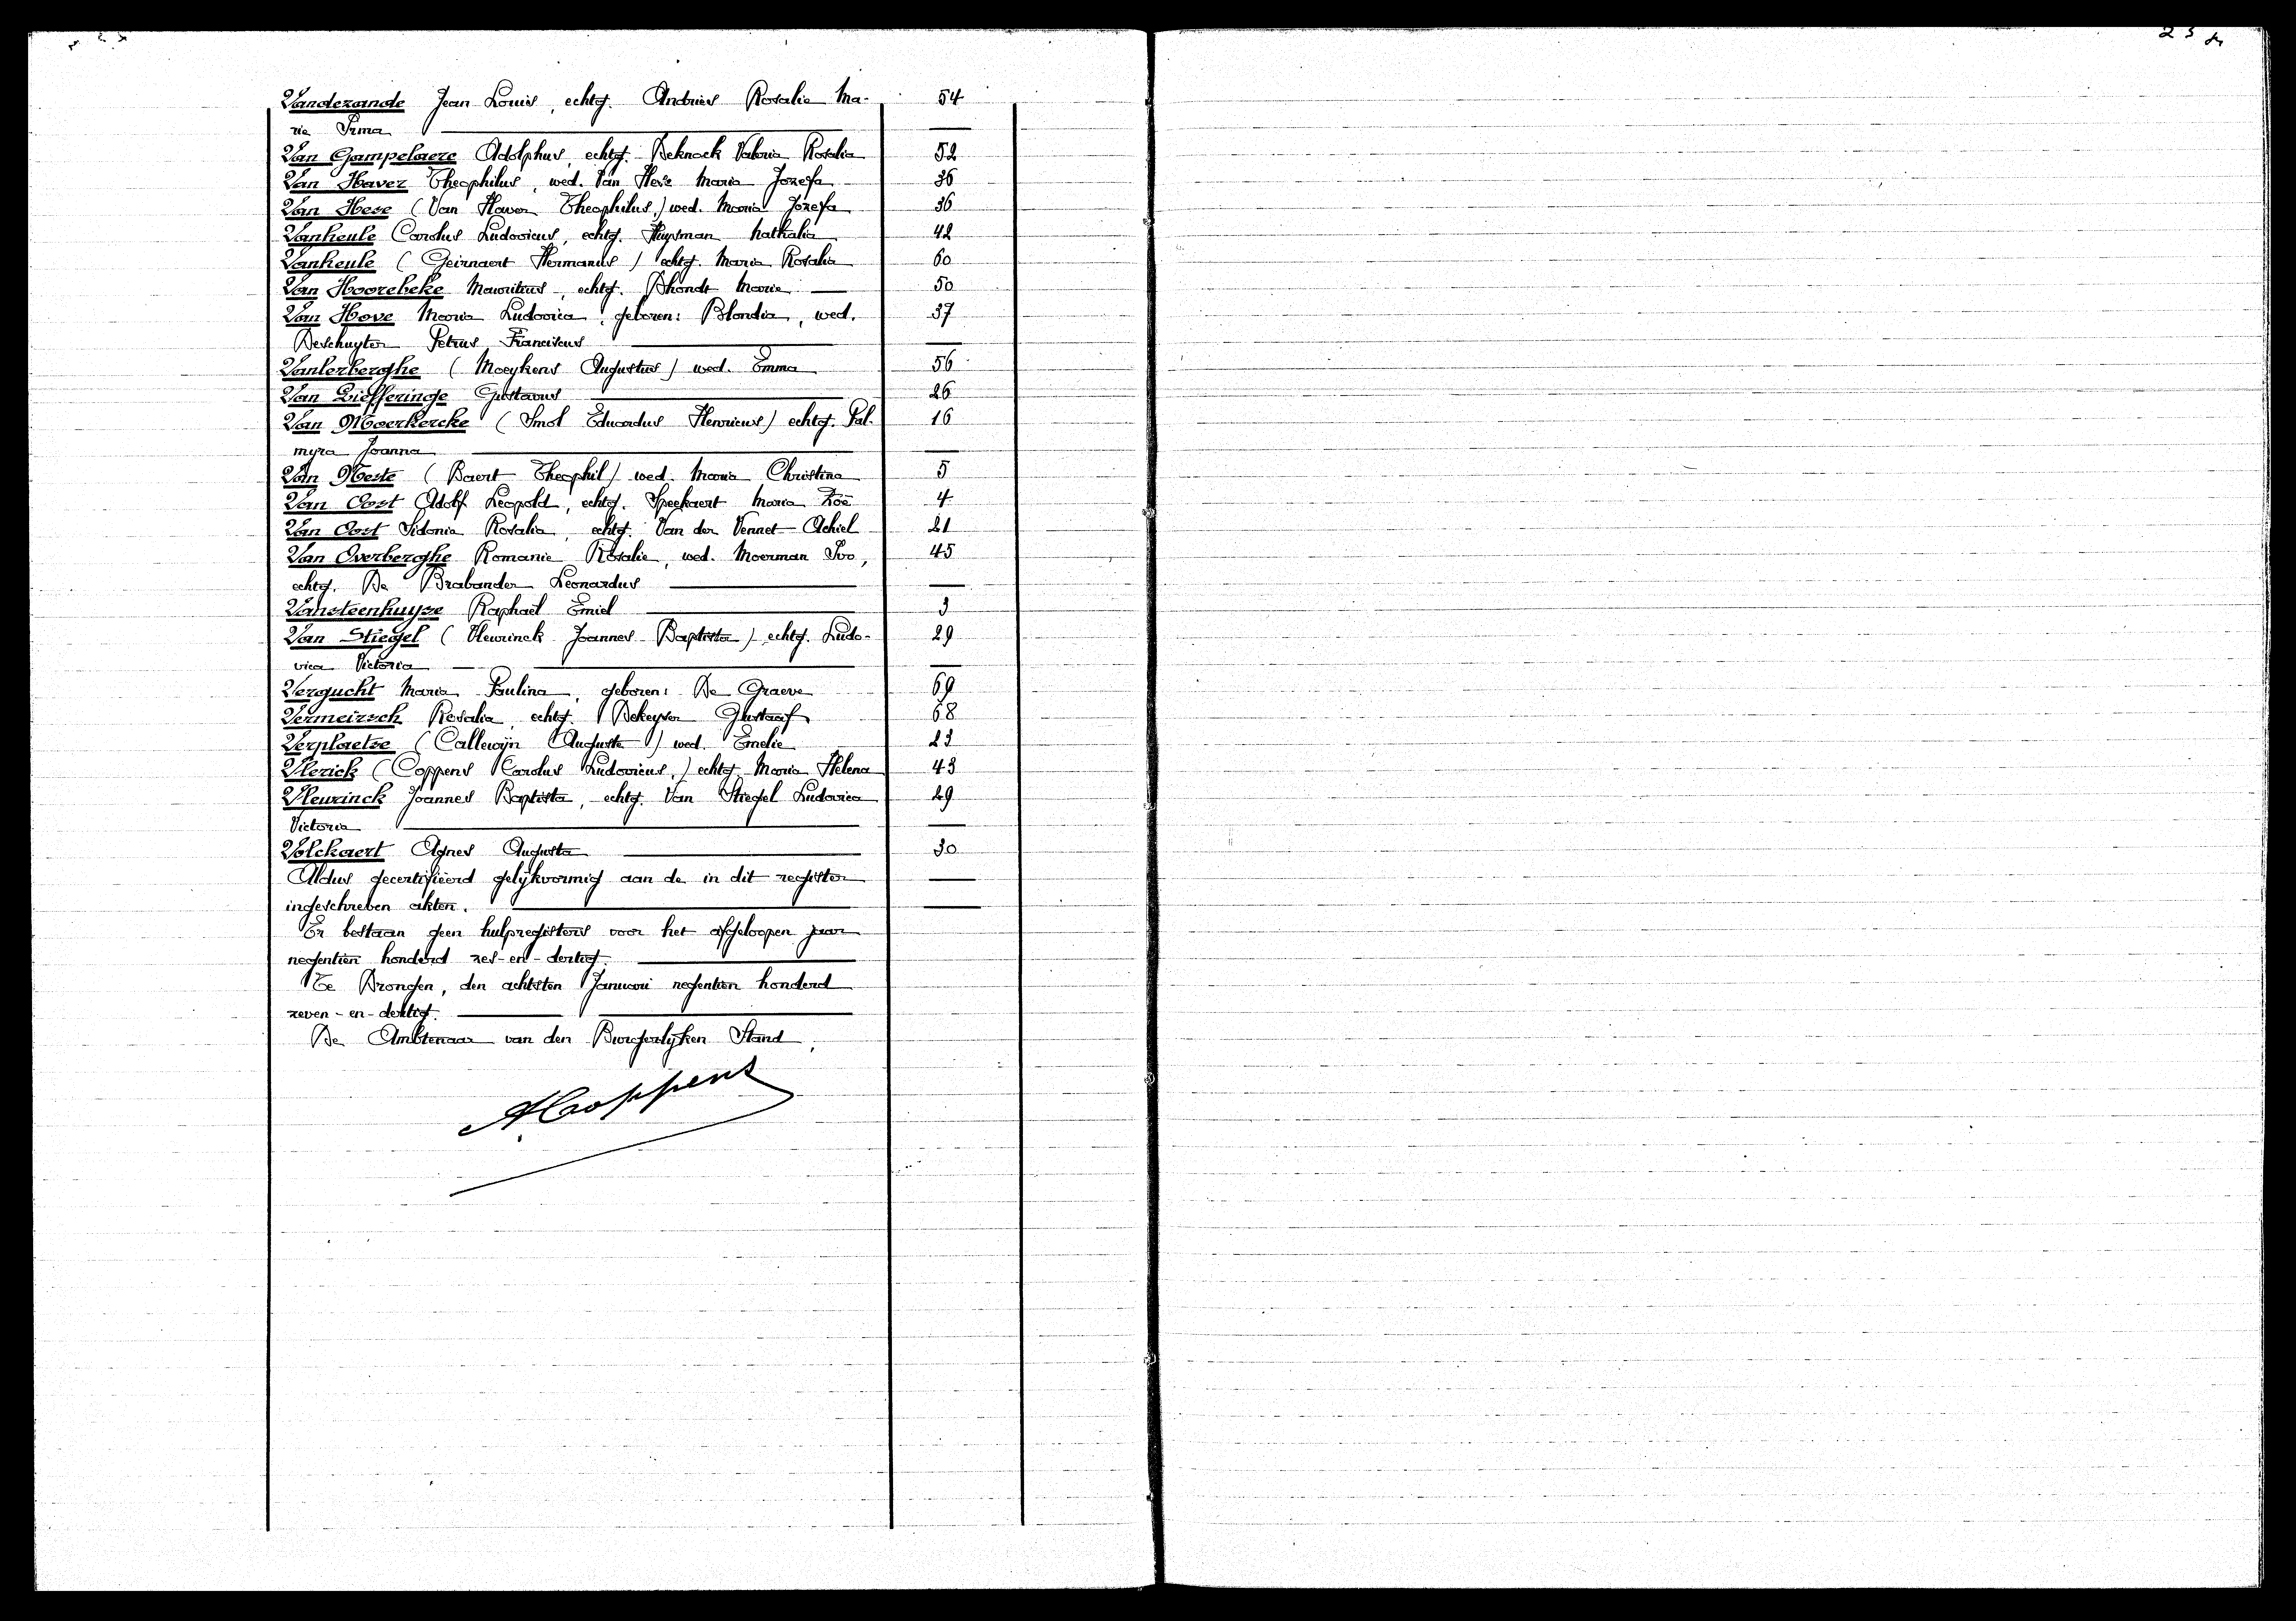 Vandezande Jean Louis, echtg. Andries Rosalie Ma- 54
rie Irma
Van Gampelaere Adolphus, echtg. Deknock Valeria Rosalia 52
Van Haver Theophilus, wed. Van Hese Maria Jozefa 36
Van Hese (Van Haver Theophilus,) wed. Maria Jozefa 36
Vanheule Carolus Ludovicus, echtg. Huysman Nathalia 42
Vanheule (Geirnaert Hermanus) echtg. Maria Rosalia 60
Van Hoorebeke Mauritius, echtg. Dhondt Maria 50
Van Hove Maria Ludovica, geboren: Blondia, wed. 37
Deschuyter Petrus Franciscus
Vanlerberghe (Moeykens Augustus) wed. Emma 56
Van Liefferinge Gustavus 26
Van Moerkercke (Smol Eduardus Henricus) echtg. Pal- 16
myra Joanna
Van Neste (Baert Theophil) wed. Maria Christina 5
Van Oost Adolf Leopold, echtg. Speekaert Maria Zoë 4
Van Oost Sidonia Rosalia, echtg. Van der Vennet Achiel 21
Van Overberghe Romanie Rosalie, wed. Moerman Ivo, 45
echtg. De Brabander Leonardus
Vansteenhuyse Raphaël Emiel 3
Van Stiegel (Vleurinck Joannes Baptista) echtg. Ludo- 29
vica Victoria
Vergucht Maria Paulina, geboren: De Graeve 69
Vermeirsch Rosalia, echtg. Dekeyser Gustaaf 68
Verplaetse (Callewijn Auguste) wed. Emelie 23
Vlerick (Coppens Carolus Ludovicus,) echtg. Maria Helena 43
Vleurinck Joannes Baptista, echtg. Van Stiegel Ludovica 29
Victoria
Volckaert Agnes Augusta 30
Aldus gecertifieerd gelijkvormig aan de in dit register
ingeschreven akten.
Er bestaan geen hulpregisters voor het afgeloopen jaar
negentien honderd zes-en-dertig.
Te Drongen, den achtsten Januari negentien honderd
zeven-en-dertig.
De Ambtenaar van den Burgerlijken Stand,
ACoppens